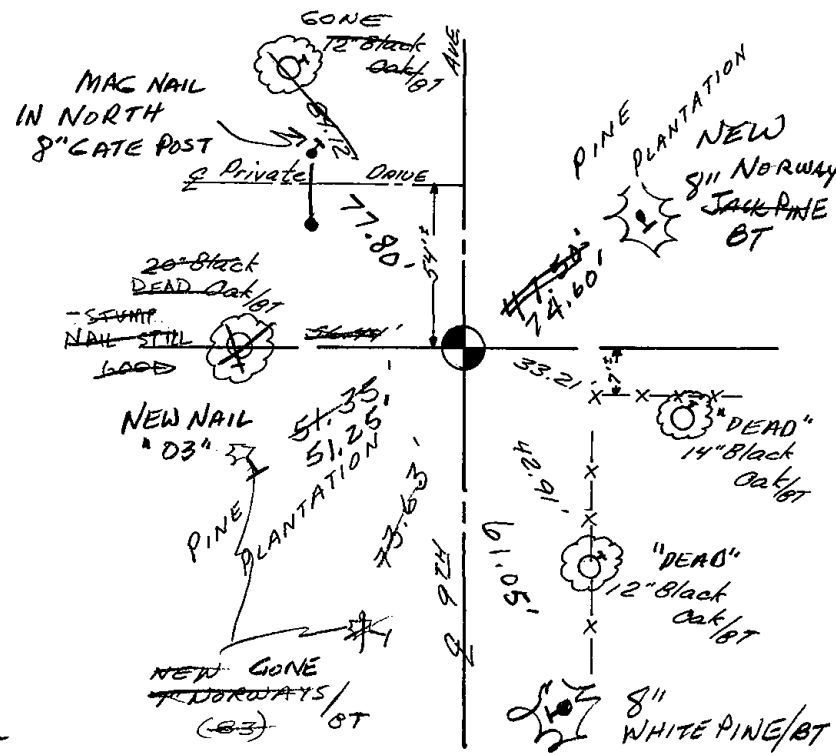 GONE
12" Black
Oak/BT
AVE.
MAG NAIL
IN NORTH
8" GATE POST
℄ Private DRIVE
77.80'
54'±
PINE
PLANTATION
NEW
8" NORWAY
JACK PINE
BT
74.60'
20" Black
DEAD Oak/BT
- STUMP
NAIL STILL
GOOD
33.21'
7'±
"DEAD"
14" Black
Oak/BT
NEW NAIL
"03"
51.35'
51.25'
PINE
PLANTATION
73.63'
℄ 9TH
42.91'
61.05'
"DEAD"
12" Black
Oak/BT
NEW GONE
7" NORWAYS/BT
(83)
8"
WHITE PINE/BT